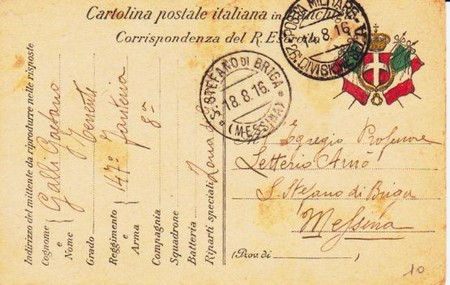 Cartolina postale italiana in
Corrispondenza del R. Esercito
POSTA MILITARE
14.8.16
26ª DIVISIONE
S. STEFANO DI BRIGA
18.8.16
(MESSINA)
Indirizzo del mittente da riprodurre nelle risposte
Cognome e Nome Galli Gaetano
Grado Tenente
Reggimento e Arma 147º Fanteria
Compagnia 8ª
Squadrone
Batteria
Riparti speciali Zona di
Egregio Professore
Letterio
S. Stefano di Briga
Messina
(Prov. di )
10